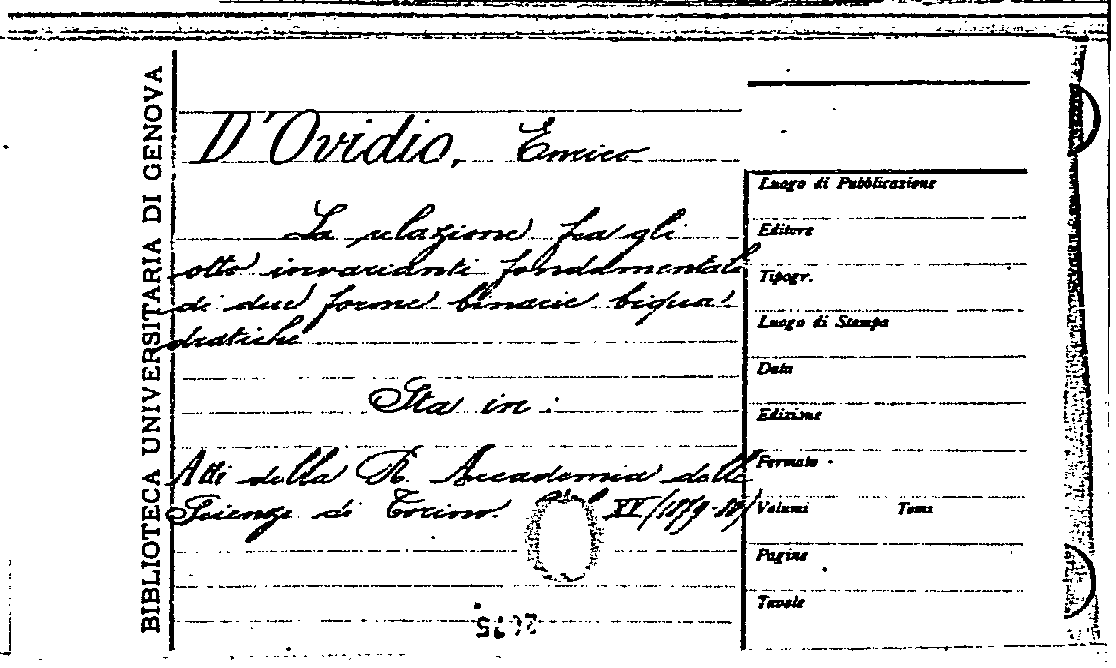 BIBLIOTECA UNIVERSITARIA DI GENOVA
D'Ovidio, Enrico
La relazione fra gli
otto invarianti fondamentali
di due forme binarie biqua-
dratiche
Sta in:
Atti della R. Accademia delle
Scienze di Torino. Vol. XV/1879-80/
Luogo di Pubblicazione
Editore
Tipogr.
Luogo di Stampa
Data
Edizione
Formato
Volumi Tomi
Pagine
Tavole